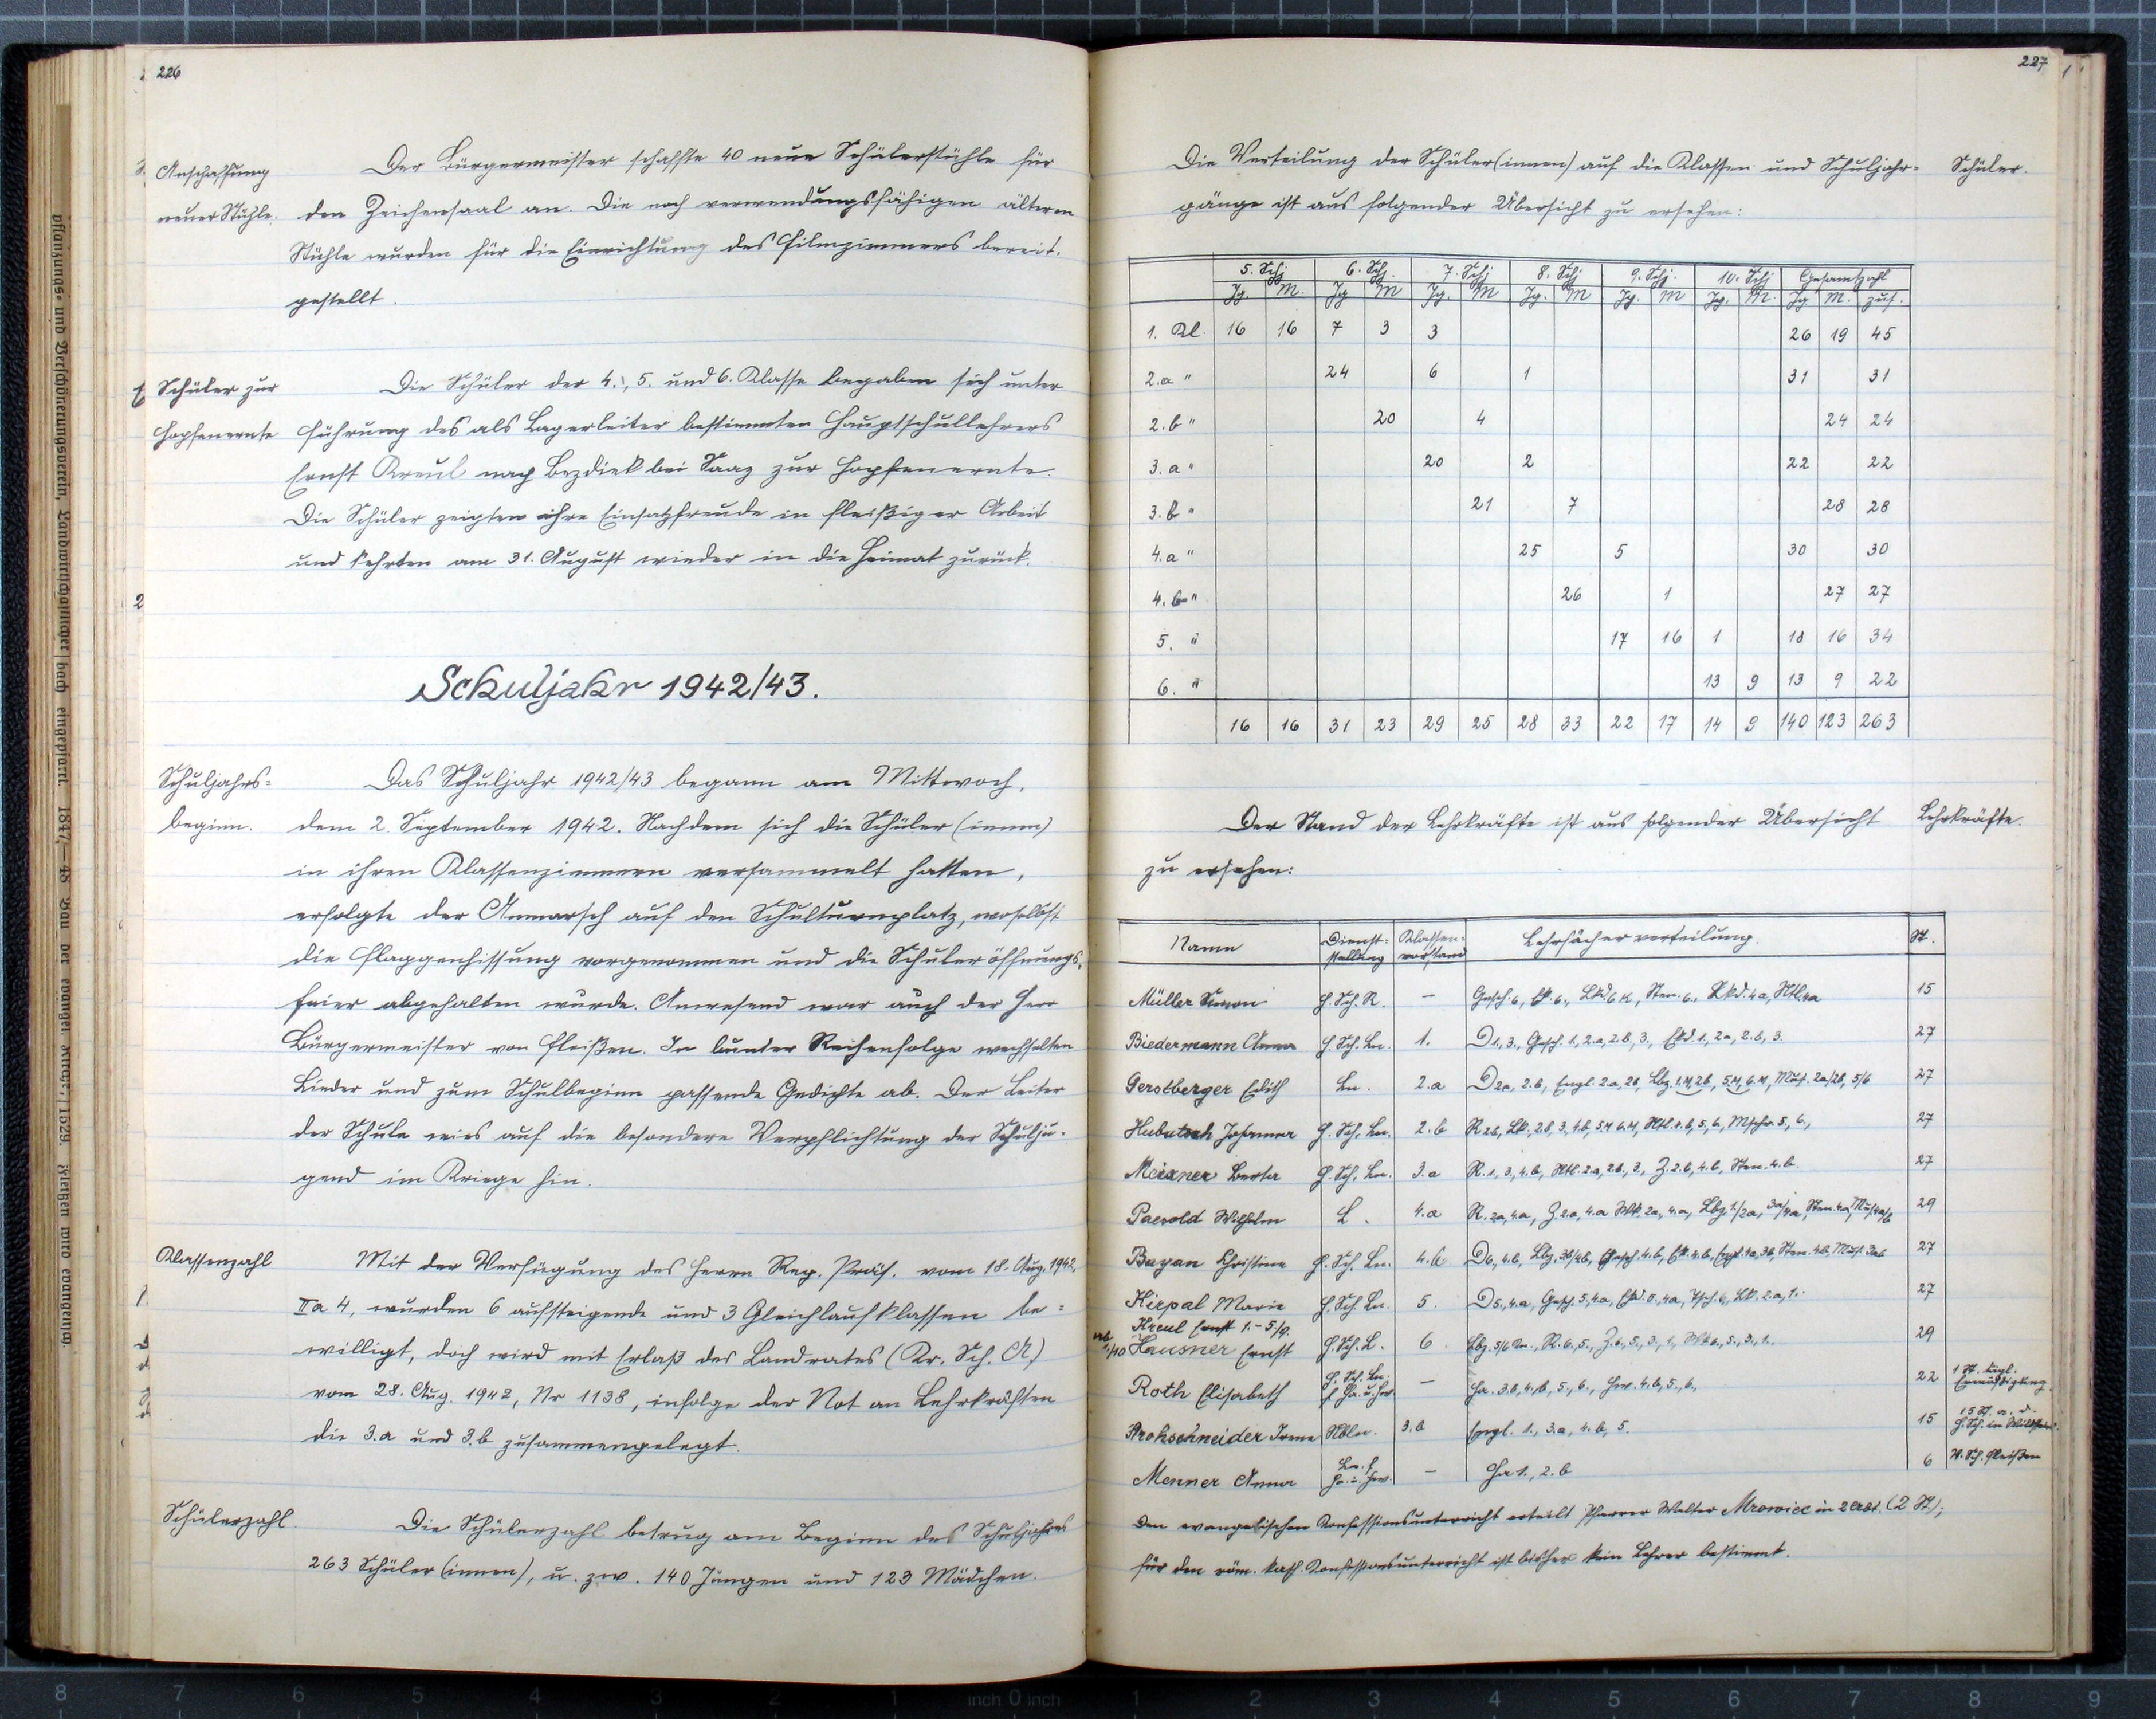 226
Anschaffung
neuer Stühle.
Der Bürgermeister schaffte 40 neue Schülerstühle für
den Zeichensaal an. Die noch verwendungsfähigen älteren
Stühle wurden für die Einrichtung des Filmzimmers bereit-
gestellt.
Schüler zur
Hopfenernte
Die Schüler der 4., 5. und 6. Klasse begaben sich unter
Führung des als Lagerleiter bestimmten Hauptschullehrers
Ernst Kreul nach Bezdiek bei Saaz zur Hopfenernte.
Die Schüler zeigten ihre Einsatzfreude in fleißiger Arbeit
und kehrten am 31. August wieder in die Heimat zurück.
Schuljahr 1942/43.
Schuljahrs=
beginn.
Das Schuljahr 1942/43 begann am Mittwoch,
dem 2. September 1942. Nachdem sich die Schüler (innen)
in ihren Klassenzimmern versammelt hatten,
erfolgte der Anmarsch auf den Schulturnplatz, woselbst
die Flaggenhissung vorgenommen und die Schuleröffnungs-
feier abgehalten wurde. Anwesend war auch der Herr
Bürgermeister von Fleißen. In bunter Reihenfolge wechselten
Lieder und zum Schulbeginn passende Gedichte ab. Der Leiter
der Schule wies auf die besondere Verpflichtung der Schulju-
gend im Kriege hin.
Klassenzahl
Mit der Verfügung des Herrn Reg. Präs. vom 18. Aug. 1942,
IIa 4, wurden 6 aufsteigende und 3 Gleichlaufklassen be=
willigt, doch wird mit Erlaß des Landrates (Kr. Sch. A)
vom 28. Aug. 1942, Nr 1138, infolge der Not an Lehrkräften
die 3.a und 3.b zusammengelegt.
Schülerzahl.
Die Schülerzahl betrug am Beginn des Schuljahres
263 Schüler (innen), u. zw. 140 Jungen und 123 Mädchen.
227
Die Verteilung der Schüler(innen) auf die Klassen und Schuljahr=
Schüler.
gänge ist aus folgender Übersicht zu ersehen:
5. Schj 6. Schj. 7. Schj 8. Schj 9. Schj. 10. Schj Gesamtzahl
Jg. M. Jg M Jg. M Jg. M Jg. M Jg. M. Jg M. zus.
1. Kl. 16 16 7 3 3 26 19 45
2.a " 24 6 1 31 31
2.b " 20 4 24 24
3.a " 20 2 22 22
3.b " 21 7 28 28
4.a " 25 5 30 30
4.b " 26 1 27 27
5. " 17 16 1 18 16 34
6. " 13 9 13 9 22
16 16 31 23 29 25 28 33 22 17 14 9 140 123 263
Der Stand der Lehrkräfte ist aus folgender Übersicht
Lehrkräfte.
zu ersehen:
Name Dienst= stellung Klassen= vorstand Lehrfächerverteilung. St.
Müller Simon H. Sch. R. – 15
Biedermann Anna H. Sch. Ln. 1. D1, 3., Gesch. 1, 2.a, 2.b, 3., Ekd. 1, 2a, 2.b, 3. 27
Gerstberger Edith Ln. 2.a D2a, 2.b, Engl. 2.a, 2b, 27
Johanna H. Sch. Ln. 2.b 27
Meixner Berta H. Sch. Ln. 3.a R. 1, 3, 4.b, Ntl. 2.a, 2.b, 3., Z. 2.b, 4.b, Sten. 4.b. 27
Paesold Wilhelm L. 4.a R. 2a, 4.a, Z. 2.a, 4.a 29
Bayan Christine H. Sch. Ln. 4.b 27
Kirpal Marie H. Sch. Ln. 5. 27
Kreul Ernst 1.–5/9.
Hausner Ernst H. Sch. L. 6. 29
Roth Elisabeth H. Sch. Ln. f Ha. u. Hw. – Ha. 3.b, 4.b, 5., 6., Hw. 4.b, 5., 6., 22 1 St. Ermäßigung.
Prohschneider Irma 3.b Engl. 1., 3.a, 4.b, 5. 15 15 St. a. d. H. Sch. in Wildstein.
Menner Anna Ln. f Ha. u. Hw. – Ha 1., 2.b 6 V. Sch. Fleißen
Den evangelischen Konfessionsunterricht erteilt Pfarrer Walter Mrowiec in 2 Abt. (2 St.);
für den röm. kath. Konfessionsunterricht ist bisher kein Lehrer bestimmt.